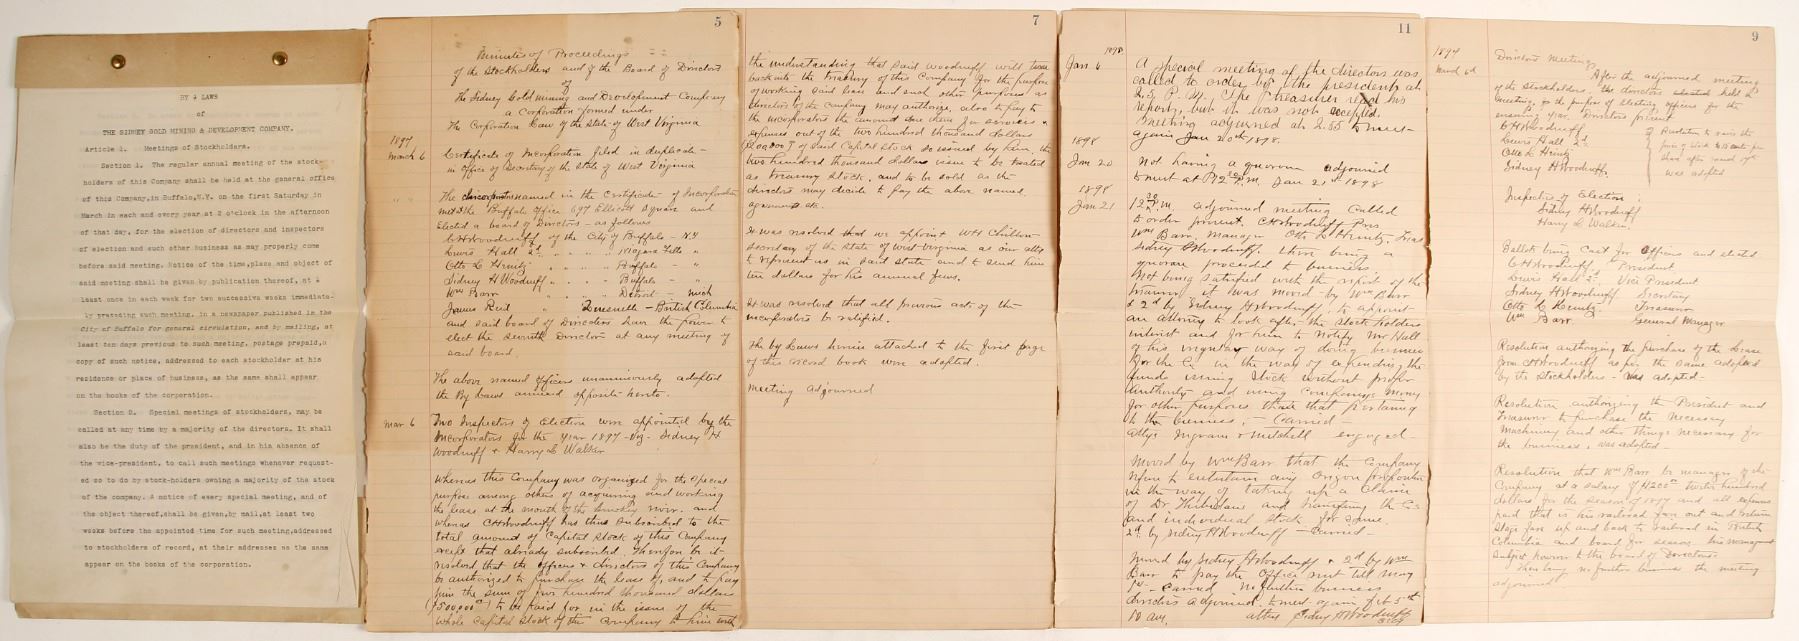 BY - LAWS
of
THE SIDNEY GOLD MINING & DEVELOPMENT COMPANY.
Article 1. Meetings of Stockholders.
Section 1. The regular annual meeting of the stock-
holders of this Company shall be held at the general office
of this Company, in Buffalo, N.Y. on the first Saturday in
March in each and every year at 2 o'clock in the afternoon
of that day, for the election of directors and inspectors
of election and such other business as may properly come
before said meeting. Notice of the time, place and object of
said meeting shall be given by publication thereof, at
least once in each week for two successive weeks immediate-
ly preceding such meeting, in a newspaper published in the
City of Buffalo for general circulation, and by mailing, at
least ten days previous to such meeting, postage prepaid, a
copy of such notice, addressed to each stockholder at his
residence or place of business, as the same shall appear
on the books of the corporation.
Section 2. Special meetings of stockholders, may be
called at any time by a majority of the directors. It shall
also be the duty of the president, and in his absence of
the vice-president, to call such meetings whenever request-
ed so to do by stock-holders owning a majority of the stock
of the company. A notice of every special meeting, and of
the object thereof, shall be given, by mail, at least two
weeks before the appointed time for such meeting, addressed
to stockholders of record, at their addresses as the same
appear on the books of the corporation.
5
Minutes of Proceedings
of the Stockholders and of the Board of Directors
of
The Sidney Gold mining and Development Company
a Corporation formed under
The Corporation Law of the State of West Virginia
1897
March 6 Certificate of Incorporation filed in duplicate -
in Office of Secretary of the State of West Virginia
" " The incorporators named in the Certificate of Incorporation
met at the Buffalo Office 697 Ellicott Square and
Elected a board of Directors - as follows
C H Woodruff of the City of Buffalo - N.Y.
Lewis Hall 2d " " " " Niagara Falls "
Otto L Heintz " " " " Buffalo - "
Sidney H Woodruff " " " " Buffalo - "
Wm Barr " " " " Detroit - Mich
James Reid " Quesnelle - British Columbia
and said board of Directors have the power to
elect the seventh Director at any meeting of
said board.
The above named officers unanimously adopted
the By Laws annexed opposite hereto.
Mar 6 Two Inspectors of Election were appointed by the
Incorporators for the year 1897 - viz - Sidney H
Woodruff & Harry L Walker
Whereas this Company was organized for the special
purpose among others of acquiring and working
the lease at the mouth of the river. and
whereas C H Woodruff has thus subscribed to the
total amount of Capital Stock of this Company
except that already subscribed. Therefore be it
resolved that the officers & directors of this Company
be authorized to purchase the lease of, and to pay
him the sum of five hundred thousand dollars
($500,000 00) to be paid for in the issue of the
whole Capital Stock of the Company to him with
7
the understanding that said Woodruff will turn
back into the Treasury of this Company for the purpose
of working said lease and such other purposes as
directors of the company may authorize, also to pay to
the incorporators the amount due them for services &
expenses out of the two hundred thousand dollars
($200,000) of said Capital Stock so issued by him, the
two hundred thousand dollars issue to be treated
as treasury stock, and to be sold as the
directors may decide to pay the above named.
agreements etc.
It was resolved that we appoint W H Chilton
Secretary of the State of West Virginia as our atty
to represent us in said state and to send him
ten dollars for his annual fees.
It was resolved that all previous acts of the
incorporators be ratified.
The by Laws herein attached to the first page
of this record book were adopted.
Meeting adjourned
11
1898
Jan 6 A special meeting of the directors was
called to order by the president at
2.30 P.M. The treasurer read his
report, but it was not accepted.
Meeting adjourned at 2.55 to meet
again Jan 20th 1898.
1898
Jan 20 Not having a quorum adjourned
to meet at P.M. Jan 21st 1898
1898
Jan 21 P.m. adjourned meeting called
to order present. C H Woodruff Pres
Wm Barr, Manager Otto L Heintz Treas
Sidney H Woodruff. there being a
quorum proceeded to business
Not being satisfied with the report of the
treasurer it was moved by Wm Barr
& 2d by Sidney H Woodruff to appoint
an attorney to look after the stock holders
interest and for him to notify Mr Hall
of his irregular way of doing business
for the Co in the way of expending the
funds issuing stock without proper
Authority and using Companys money
for other purposes than that pertaining
to the business, Carried -
Attys Ingram & Mitchell engaged -
Moved by Wm Barr that the Company
refuse to entertain any proposition
in the way of taking up a claim
of Dr and transfering the Co's
and individual stock for same.
2d by Sidney H Woodruff - Carried -
Moved by Sidney H Woodruff & 2d by Wm
Barr to pay the Office rent till May
1st - Carried No further business
directors adjourned to meet again Feb 5th
10 am. attes Sidney H Woodruff
Secy
9
1897
March 6th Directors Meetings
After the adjourned meeting
of the stockholders. the directors held a
meeting, for the purpose of electing officers for the
ensuing year. Directors present
C H Woodruff
Lewis Hall 2d
Otto L Heintz
Sidney H Woodruff.
Resolution to raise the
price of stock to 15 cents per
share after
was adopted
Inspectors of Election:
Sidney H Woodruff
Harry L Walker.
Ballots being cast for Officers and elected
C H Woodruff President
Lewis Hall 2d Vice President
Sidney H Woodruff Secretary
Otto L Heintz Treasurer
Wm Barr General Manager
Resolution authorizing the purchase of the lease
from C H Woodruff as per the same adopted
by the stockholders - was adopted -
Resolution authorizing the President and
Treasurer to purchase the necessary
Machinery and other things necessary for
the business, was adopted -
Resolution that Wm Barr be manager of the
Company at a salary of $1200 00 twelve hundred
dollars for the season of 1897 and all expenses
paid that is his railroad fare out and return
Stage fare up and back to railroad in British
Columbia and board for season his management
subject however to the board of Directors.
There being no further business the meeting
adjourned